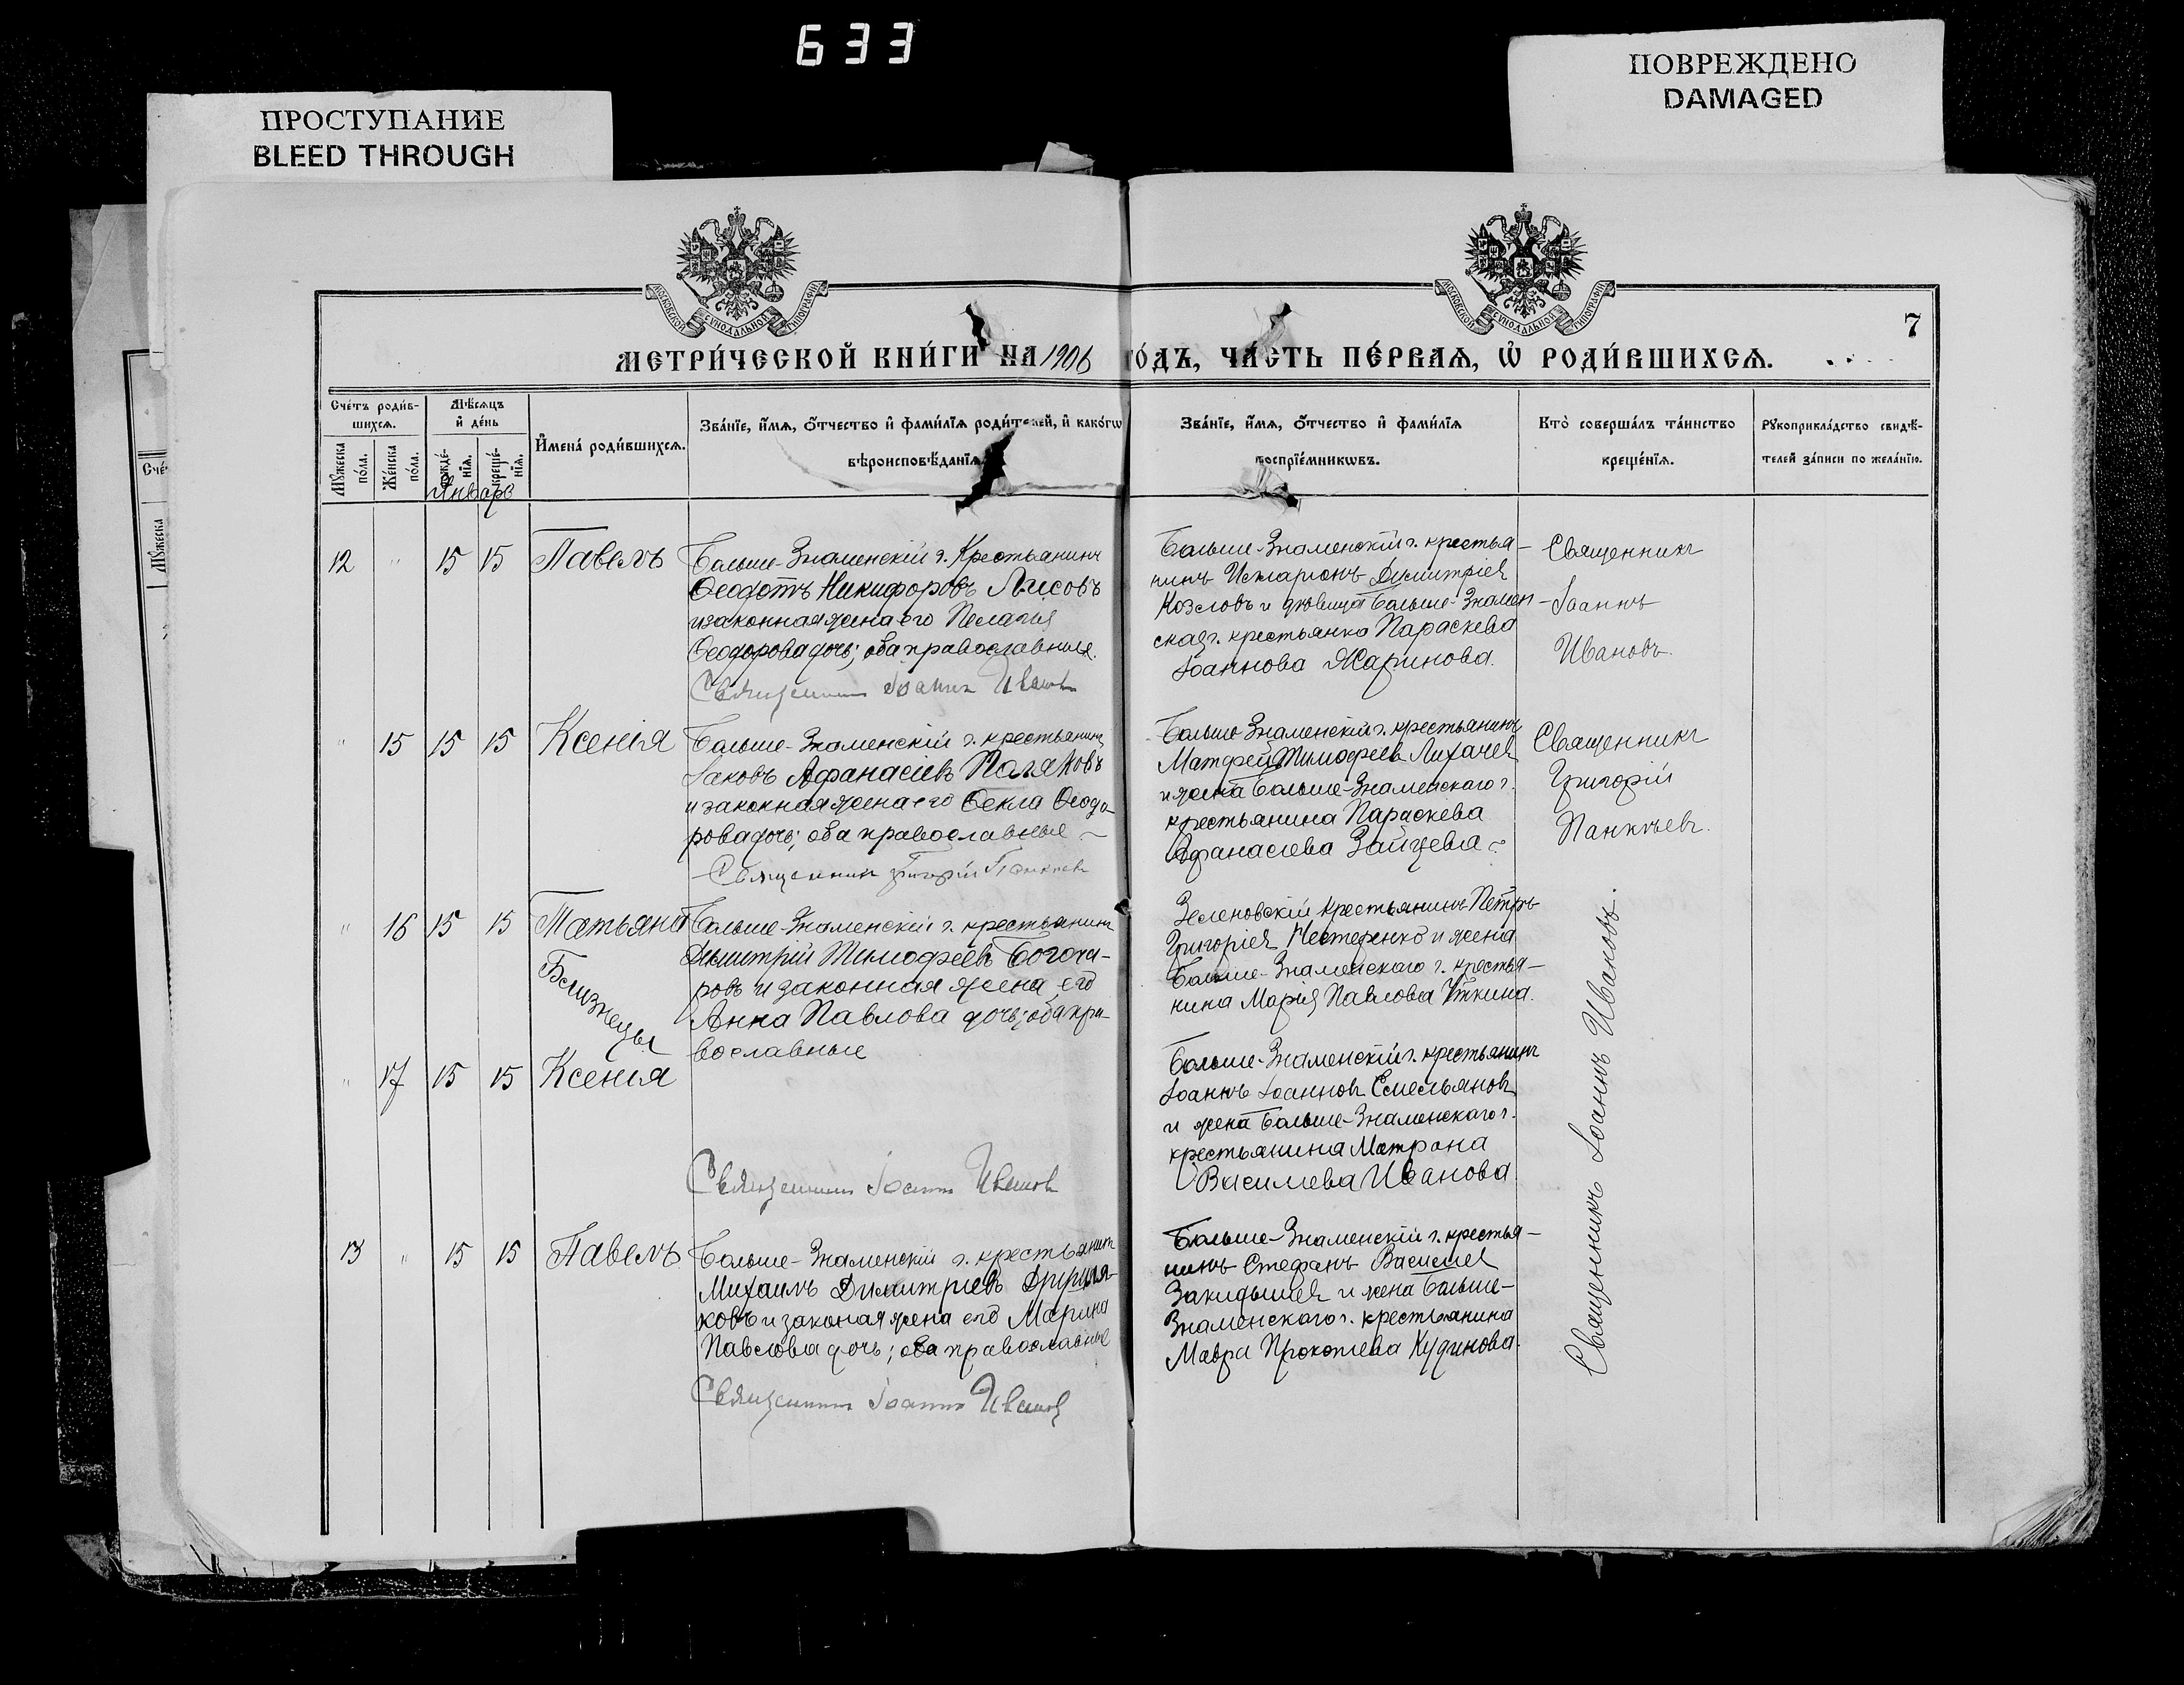 633
ПРОСТУПАНИЕ
BLEED THROUGH
ПОВРЕЖДЕНО
DAMAGED
МОСКОВСКОЙ СѴНОДАЛЬНОЙ ТИПОГРАФІИ
МОСКОВСКОЙ СѴНОДАЛЬНОЙ ТИПОГРАФІИ
7
МЕТРИ́ЧЕСКОЙ КНИ́ГИ НА 1906 ГО́ДЪ, ЧА́СТЬ ПЕ́РВАѦ, Ѡ҆ РОДИ́ВШИХСѦ.
Сче́тъ роди́в-
шихсѧ.
Мꙋ́жеска
по́ла.
Же́нска
по́ла.
Мѣ́сѧцъ
и҆ де́нь
рожде́-
нїѧ.
креще́-
нїѧ.
И҆мена̀ роди́вшихсѧ.
Зва́нїе, и҆́мѧ, ѻ҆́тчество и҆ фами́лїѧ роди́телей, и҆ како́гѡ
вѣроисповѣ́данїѧ
Зва́нїе, и҆́мѧ, ѻ҆́тчество и҆ фами́лїѧ
воспрїе́мникѡвъ.
Кто̀ соверша́лъ та́инство
креще́нїѧ.
Рꙋкоприкла́дство свидѣ́-
телей за́писи по жела́нїю.
Январь
12 " 15 15 Павелъ
Больше-Знаменскій г. Крестьянинъ
Ѳеодотъ Никифоровъ Лисовъ
и законная жена его Пелагія
Ѳеодорова дочь; оба православные.
Священникъ Іоаннъ Ивановъ
Больше-Знаменскій г. крестья-
нинъ Иларіонъ Димитріев
Козловъ и Больше-Знамен-
ская г. крестьянка Параскева
Іоаннова Жаринова.
Священникъ
Іоаннъ
Ивановъ.
" 15 15 15 Ксенія
Больше-Знаменскій г. крестьянинъ
Іаковъ Афанасіевъ Поляковъ
и законная жена его Ѳекла Ѳеодо-
рова дочь; оба православные
Священникъ Григорій Панкѣевъ
Больше Знаменскій г. крестьянинъ
Матфей Тимофеев Лихачев
и жена Больше-Знаменскаго г.
крестьянина Параскева
Афанасіева Зайцева
Священникъ
Григорій
Панкѣевъ.
" 16 15 15 Татьяна
Близнецы
Больше-Знаменскій г. крестьянинъ
Димитрій Тимофеевъ Богоча-
ровъ и законная жена его
Анна Павлова дочь; оба пра-
вославные
Зеленовскій крестьянинъ Петръ
Григоріев Нестеренко и жена
Больше-Знаменскаго г. крестья-
нина Марія Павлова Уткина.
" 17 15 15 Ксенія
Священникъ Іоаннъ Ивановъ
Больше-Знаменскій г. крестьянинъ
Іоаннъ Іоаннов Емельянов
и жена Больше-Знаменскаго г.
крестьянина Матрона
Василиева Иванова
13 " 15 15 Павелъ
Больше-Знаменскій г. крестьянинъ
Михаилъ Димитріевъ
ковъ и законая жена его Марина
Павлова дочь; оба православные
Священникъ Іоаннъ Ивановъ
Больше-Знаменскій г. крестья-
нинъ Стефанъ Василиев
Закидышев и жена Больше-
Знаменскаго г. крестьянина
Мавра Прокопиева Кудинова.
Священникъ Іоаннъ Ивановъ.